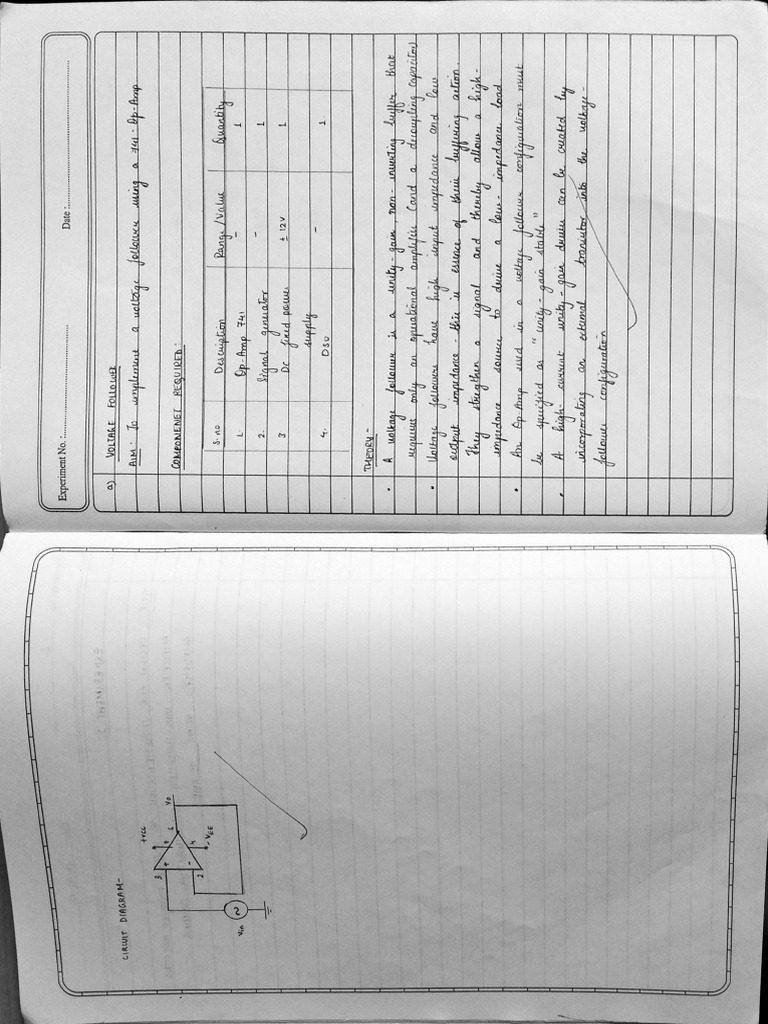 Experiment No. :
Date :
a) VOLTAGE FOLLOWER
AIM: To implement a voltage follower using a 741 - Op-Amp
COMPONENET REQUIRED:
S.no Description Range/Value Quantity
1. Op-Amp 741 - 1
2. Signal generator - 1
3 DC fixed power ± 12V 1
supply
4. DSO - 1
THEORY -
• A voltage follower is a unity-gain, non-inverting buffer that
requires only an operational amplifier (and a decoupling capacitor)
• Voltage follower have high input impedance and low
output impedance - this is essence of their buffering action.
They strengthen a signal and thereby allow a high-
impedance source to drive a low-impedance load
• An Op-Amp used in a voltage follower configuration must
be specified as "unity-gain stable"
• A high-current unity-gain driver can be created by
incorporating an external transistor into the voltage-
follower configuration
CIRCUIT DIAGRAM-
+VCC
3
+
6
Vo
2
-
4
-VEE
Vin